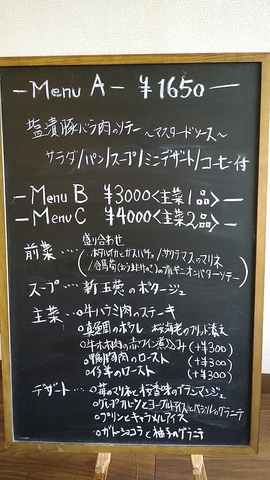 -Menu A- ¥1650-
塩漬豚バラ肉のソテー ~マスタードソース~
サラダ/パン/スープ/ミニデザート/コーヒー付
-Menu B ¥3000<主菜1品>-
-Menu C ¥4000<主菜2品>-
前菜… 盛り合わせ
/サクラマスのマリネ
ブルギニオンバターソテー)
スープ… 新玉葱のポタージュ
主菜… ○牛ハラミ肉のステーキ
○真鯛のポワレ 桜海老のフリット添え
○牛ホホ肉の赤ワイン煮込み (+¥300)
○鴨胸肉のロースト (+¥300)
○仔羊のロースト (+¥300)
デザート… ○苺のマリネと桜香味のブランマンジェ
○グレープフルーツとヨーグルトアイスとバジルのグラニテ
○プリンとキャラメルアイス
○ガトーショコラと柚子のグラニテ